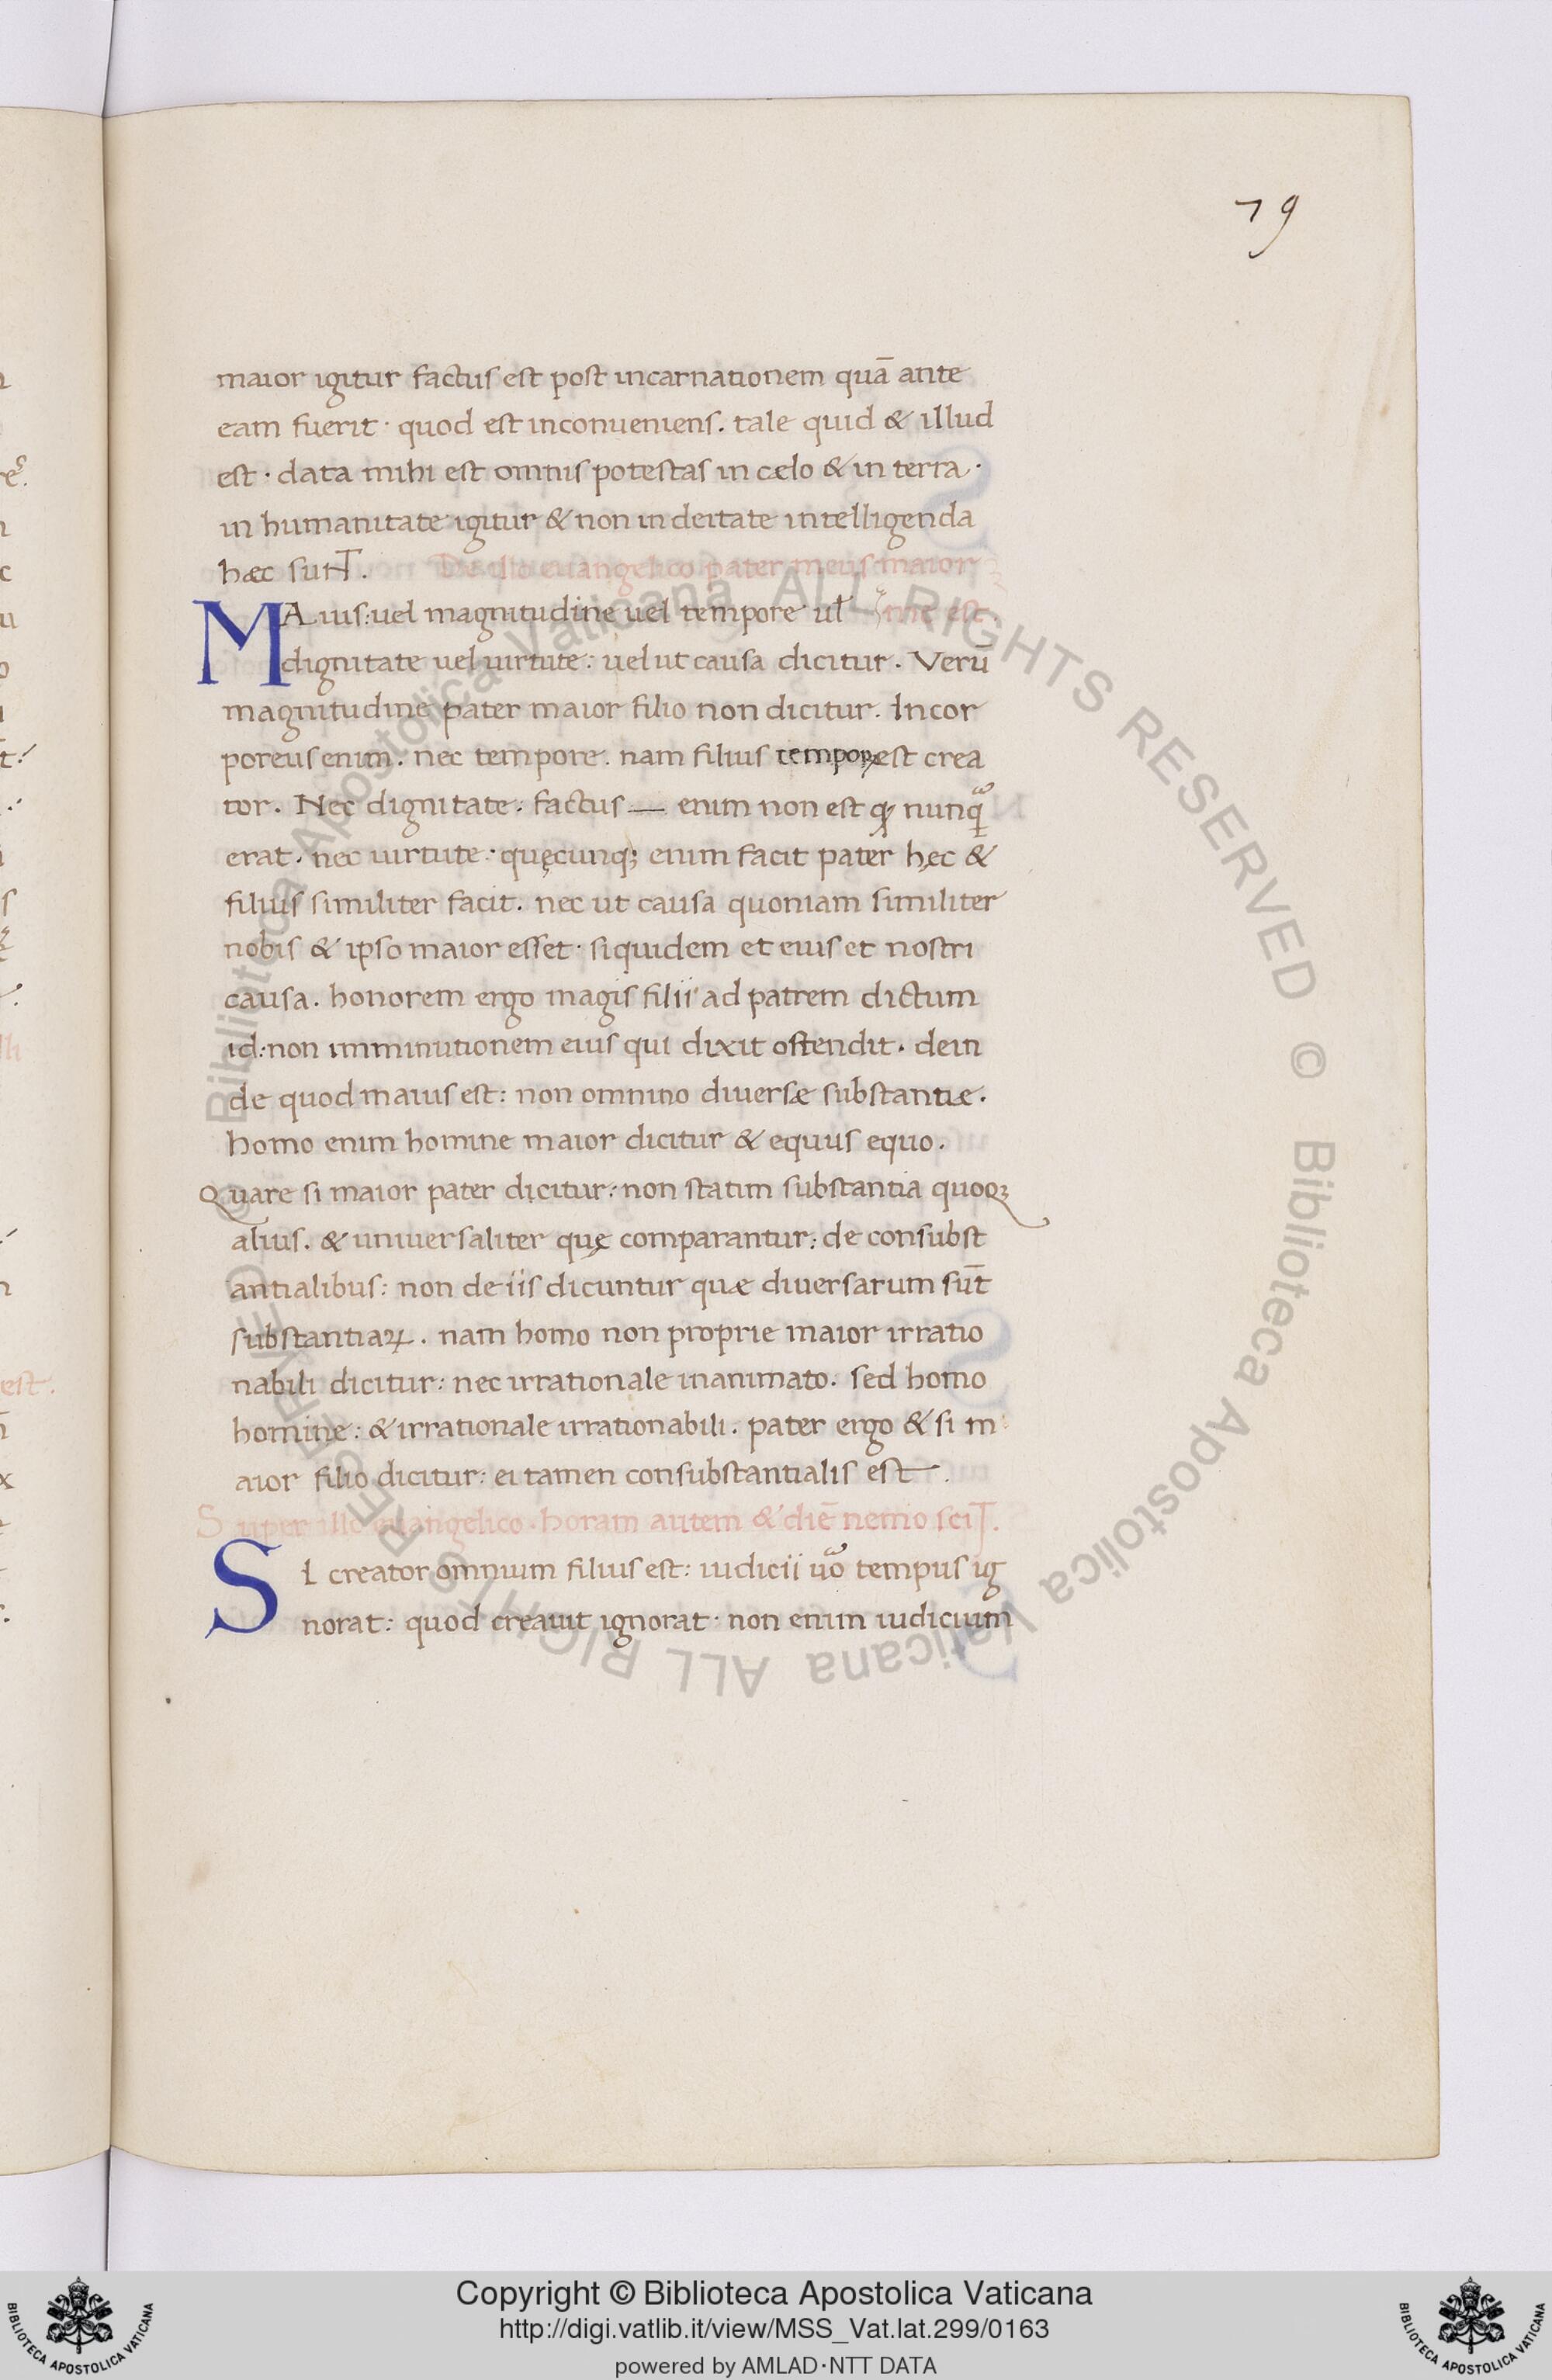 79
maior igitur factus est post incarnationem quā ante
eam fuerit · quod est inconueniens. tale quid & illud
est · data mihi est omnis potestas in cælo & in terra ·
in humanitate igitur & non in deitate intelligenda
hæc sunt. De illo euangelico pater meus maior
MAius: uel magnitudine uel tempore uł me est.
dignitate uel uirtute: uel ut causa dicitur. Verū
magnitudine pater maior filio non dicitur. Incor
poreus enim. nec tempore. nam filius temporꝝ est crea
tor. Nec dignitate. factus — enim non est ꝙ nunꝗ̃
erat. nec uirtute: quęcunq; enim facit pater hęc &
filius similiter facit. nec ut causa quoniam similiter
nobis & ipso maior esset · siquidem et eius et nostri
causa. honorem ergo magis filii ad patrem dictum
id: non imminutionem eius qui dixit ostendit. dein
de quod maius est: non omnino diuersæ substantiæ.
homo enim homine maior dicitur & equus equo.
Quare si maior pater dicitur: non statim substantia quoqꝫ
alius. & uniuersaliter quę comparantur: de consubst
antialibus: non de iis dicuntur quæ diuersarum sūt
substantiaꝝ. nam homo non proprie maior irratio
nabili dicitur: nec irrationale inanimato. sed homo
homine: & irrationale irrationabili. pater ergo & si m
aior filio dicitur: ei tamen consubstantialis est.
Super illo euangelico · horam autem & diē nemo scit.
SI creator omnium filius est: iudicii uo᷃ tempus ig
norat: quod creauit ignorat · non enim iudicium
Biblioteca Apostolica Vaticana ALL RIGHTS RESERVED © Biblioteca Apostolica Vaticana ALL RIGHTS RESERVED ©
Copyright © Biblioteca Apostolica Vaticana
http://digi.vatlib.it/view/MSS_Vat.lat.299/0163
powered by AMLAD·NTT DATA
BIBLIOTECA APOSTOLICA VATICANA
BIBLIOTECA APOSTOLICA VATICANA